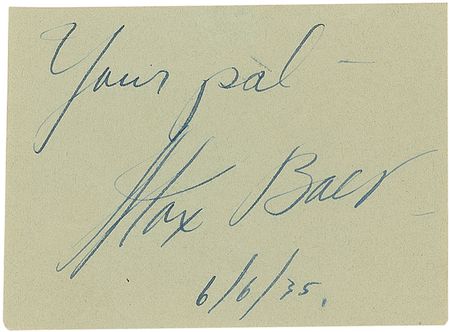 Your pal —
Max Baer
6/6/35.